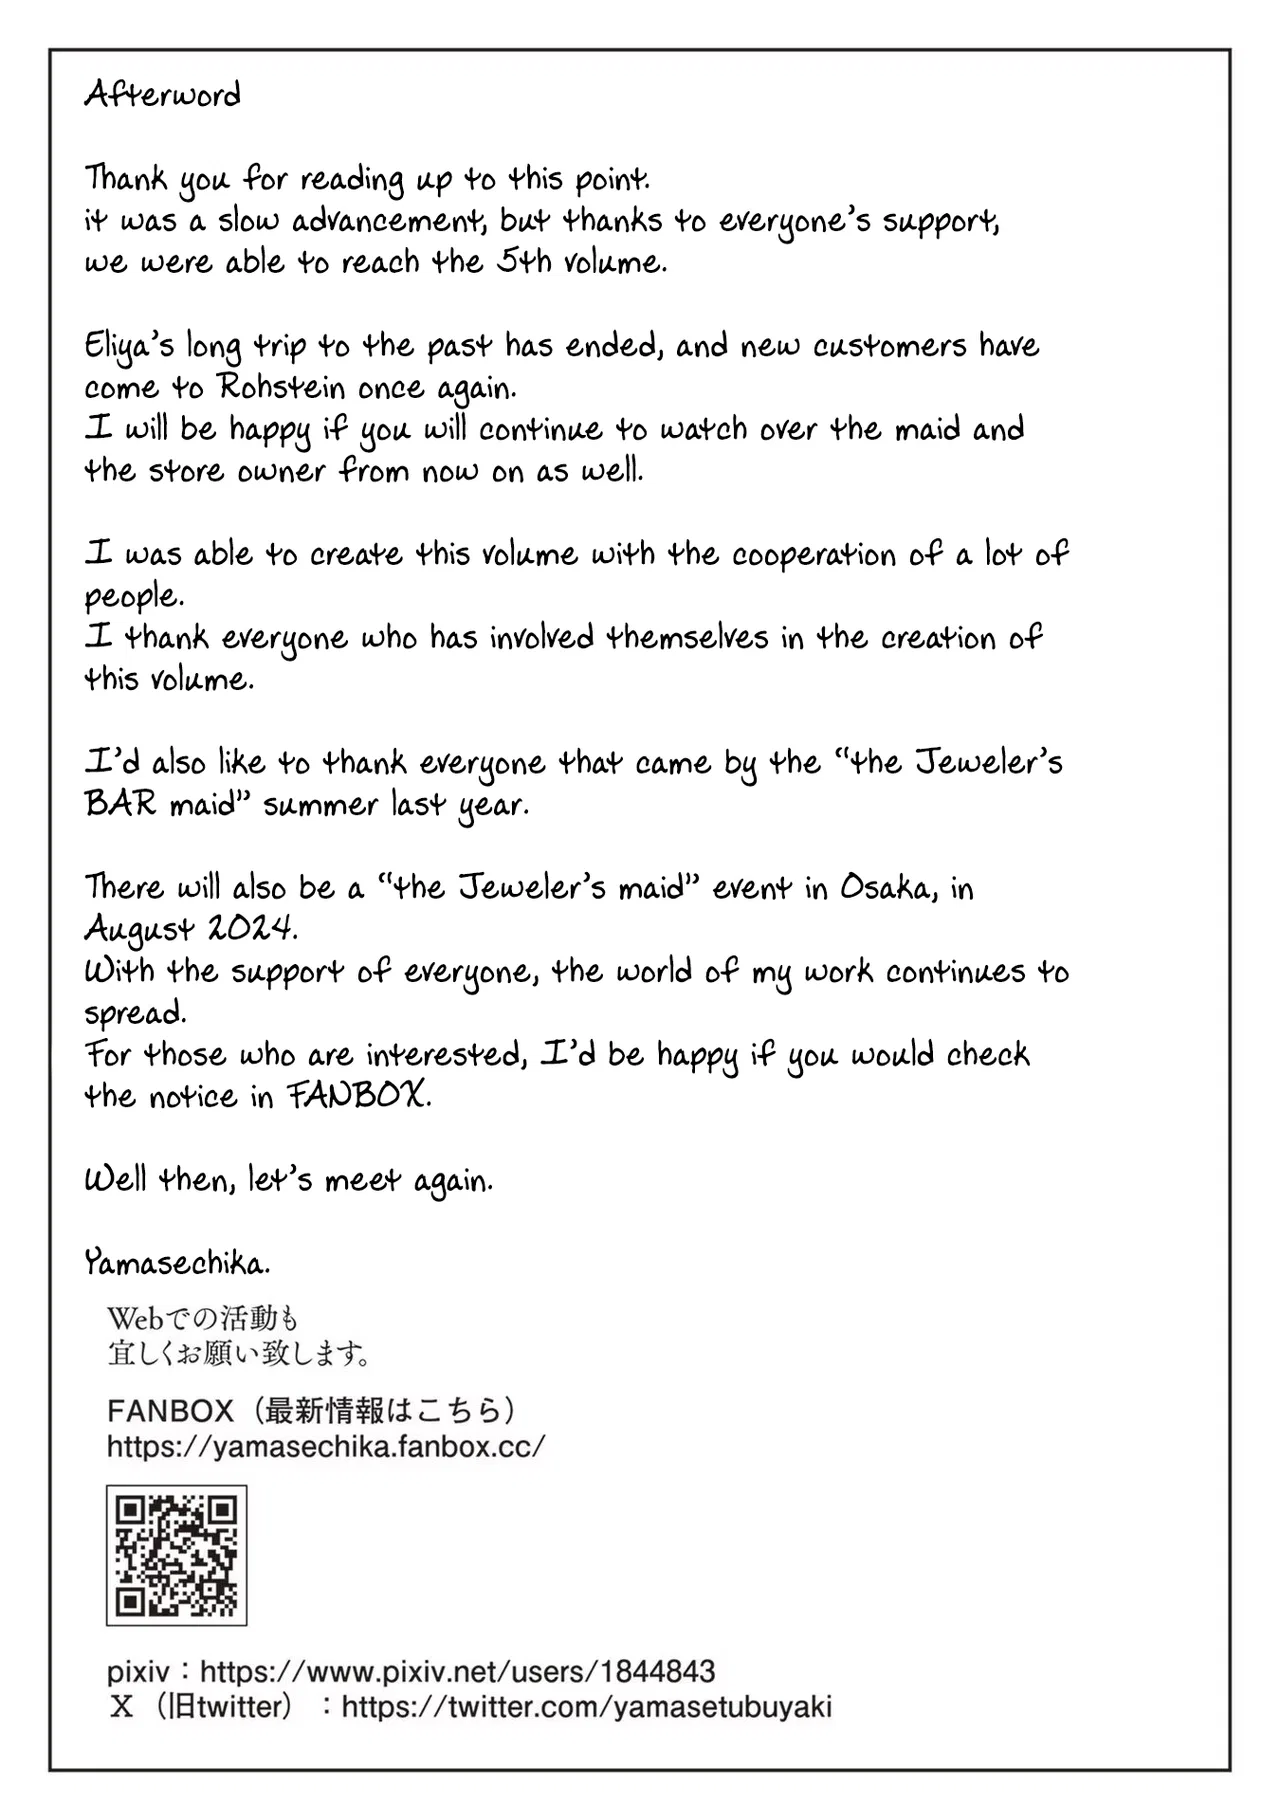 Afterword
Thank you for reading up to this point.
it was a slow advancement, but thanks to everyone's support,
we were able to reach the 5th volume.
Eliya's long trip to the past has ended, and new customers have
come to Rohstein once again.
I will be happy if you will continue to watch over the maid and
the store owner from now on as well.
I was able to create this volume with the cooperation of a lot of
people.
I thank everyone who has involved themselves in the creation of
this volume.
I'd also like to thank everyone that came by the “the Jeweler's
BAR maid” summer last year.
There will also be a “the Jeweler's maid” event in Osaka, in
August 2024.
With the support of everyone, the world of my work continues to
spread.
For those who are interested, I'd be happy if you would check
the notice in FANBOX.
Well then, let's meet again.
Yamasechika.
Webでの活動も
宜しくお願い致します。
FANBOX（最新情報はこちら）
https://yamasechika.fanbox.cc/
pixiv：https://www.pixiv.net/users/1844843
X（旧twitter）：https://twitter.com/yamasetubuyaki